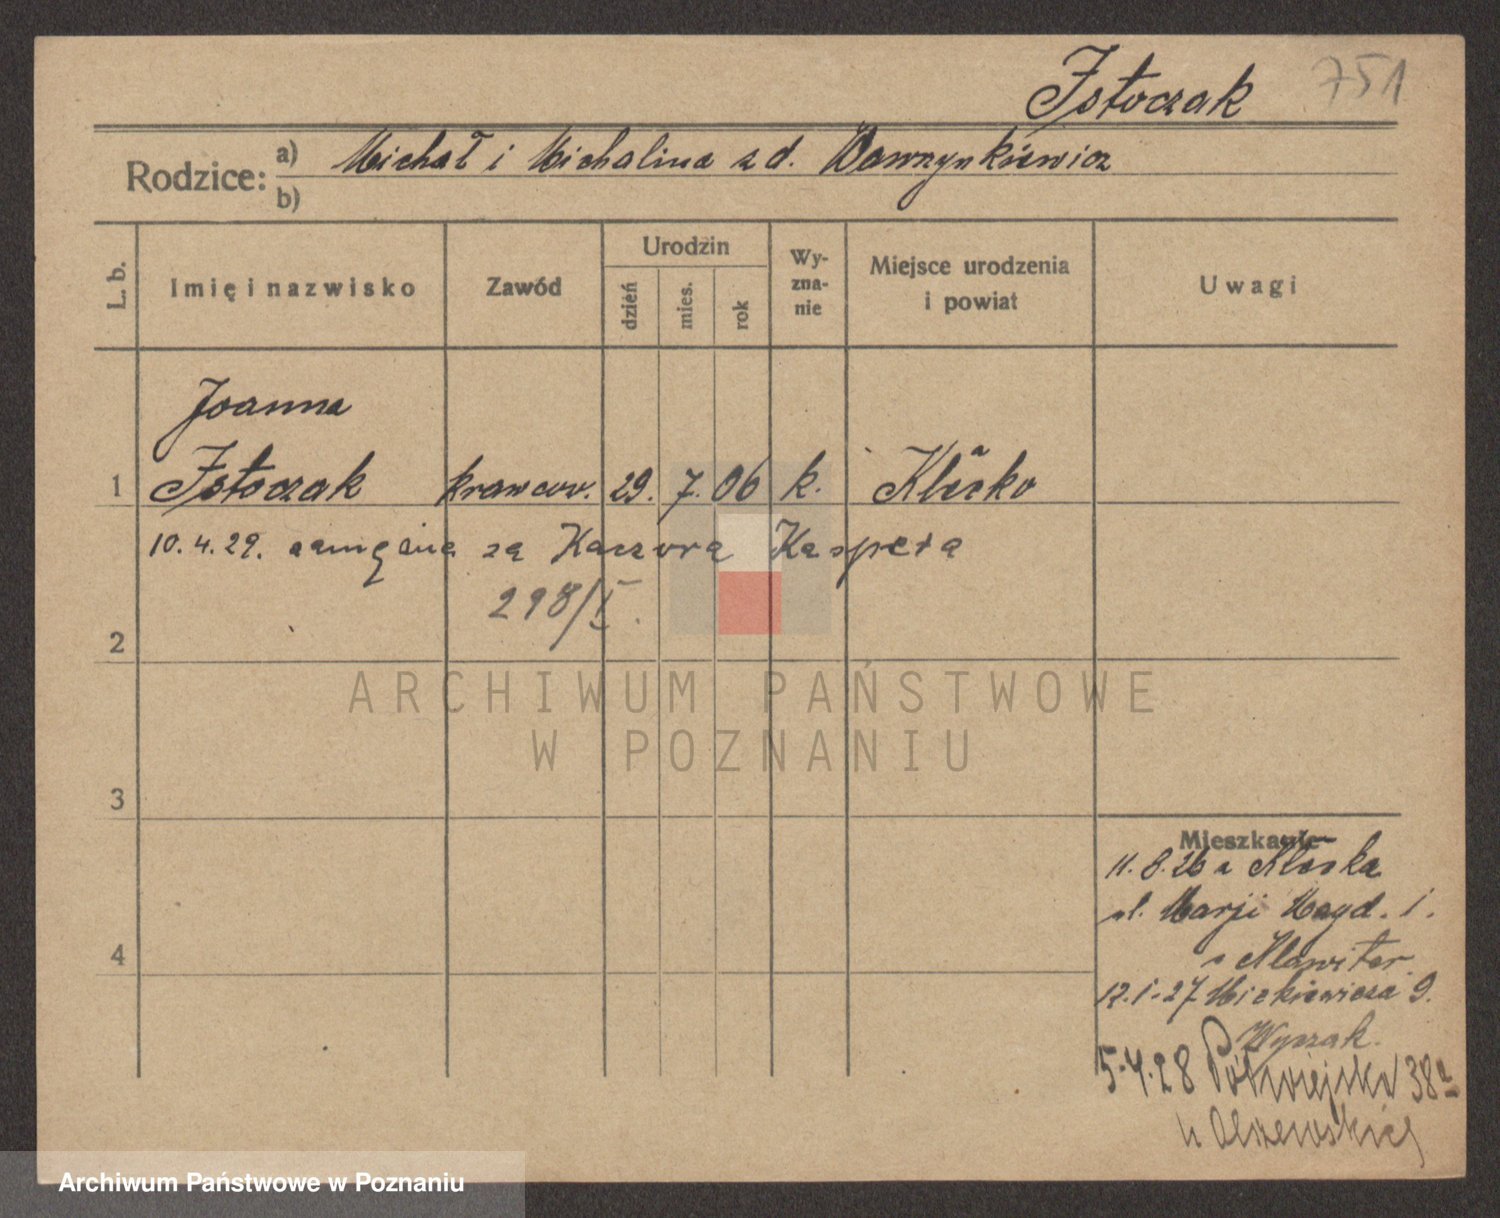 Istoczak 751
Rodzice: a) Michał i Michalina z d. Wawrzynkiewicz
b)
L. b. Imię i nazwisko Zawód Urodzin dzień mies. rok Wyznanie Miejsce urodzenia i powiat Uwagi
Joanna
1 Istoczak krawcow. 29. 7. 06 k. Kłecko
10.4.29. zamężna za Kaczora Kaspra
298/I.
2
ARCHIWUM PAŃSTWOWE
W POZNANIU
3
Mieszkanie
11.8.26 z Kłecka
ul. Marji Magd. 1.
4
12.1.27 Mickiewicza 9.
5.4.28 Półwiejska 38a
u Olszewskiej
Archiwum Państwowe w Poznaniu